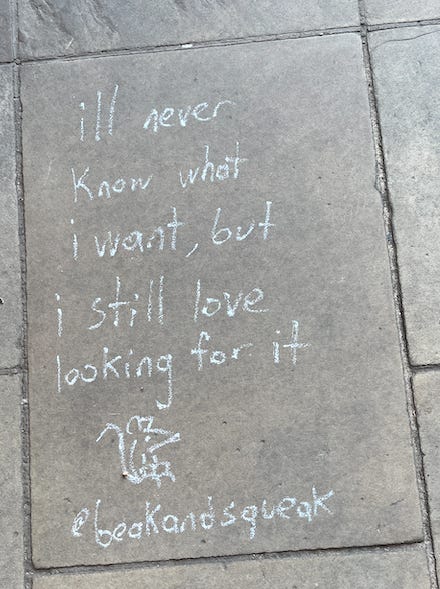 ill never
know what
i want, but
i still love
looking for it
@beakandsqueak